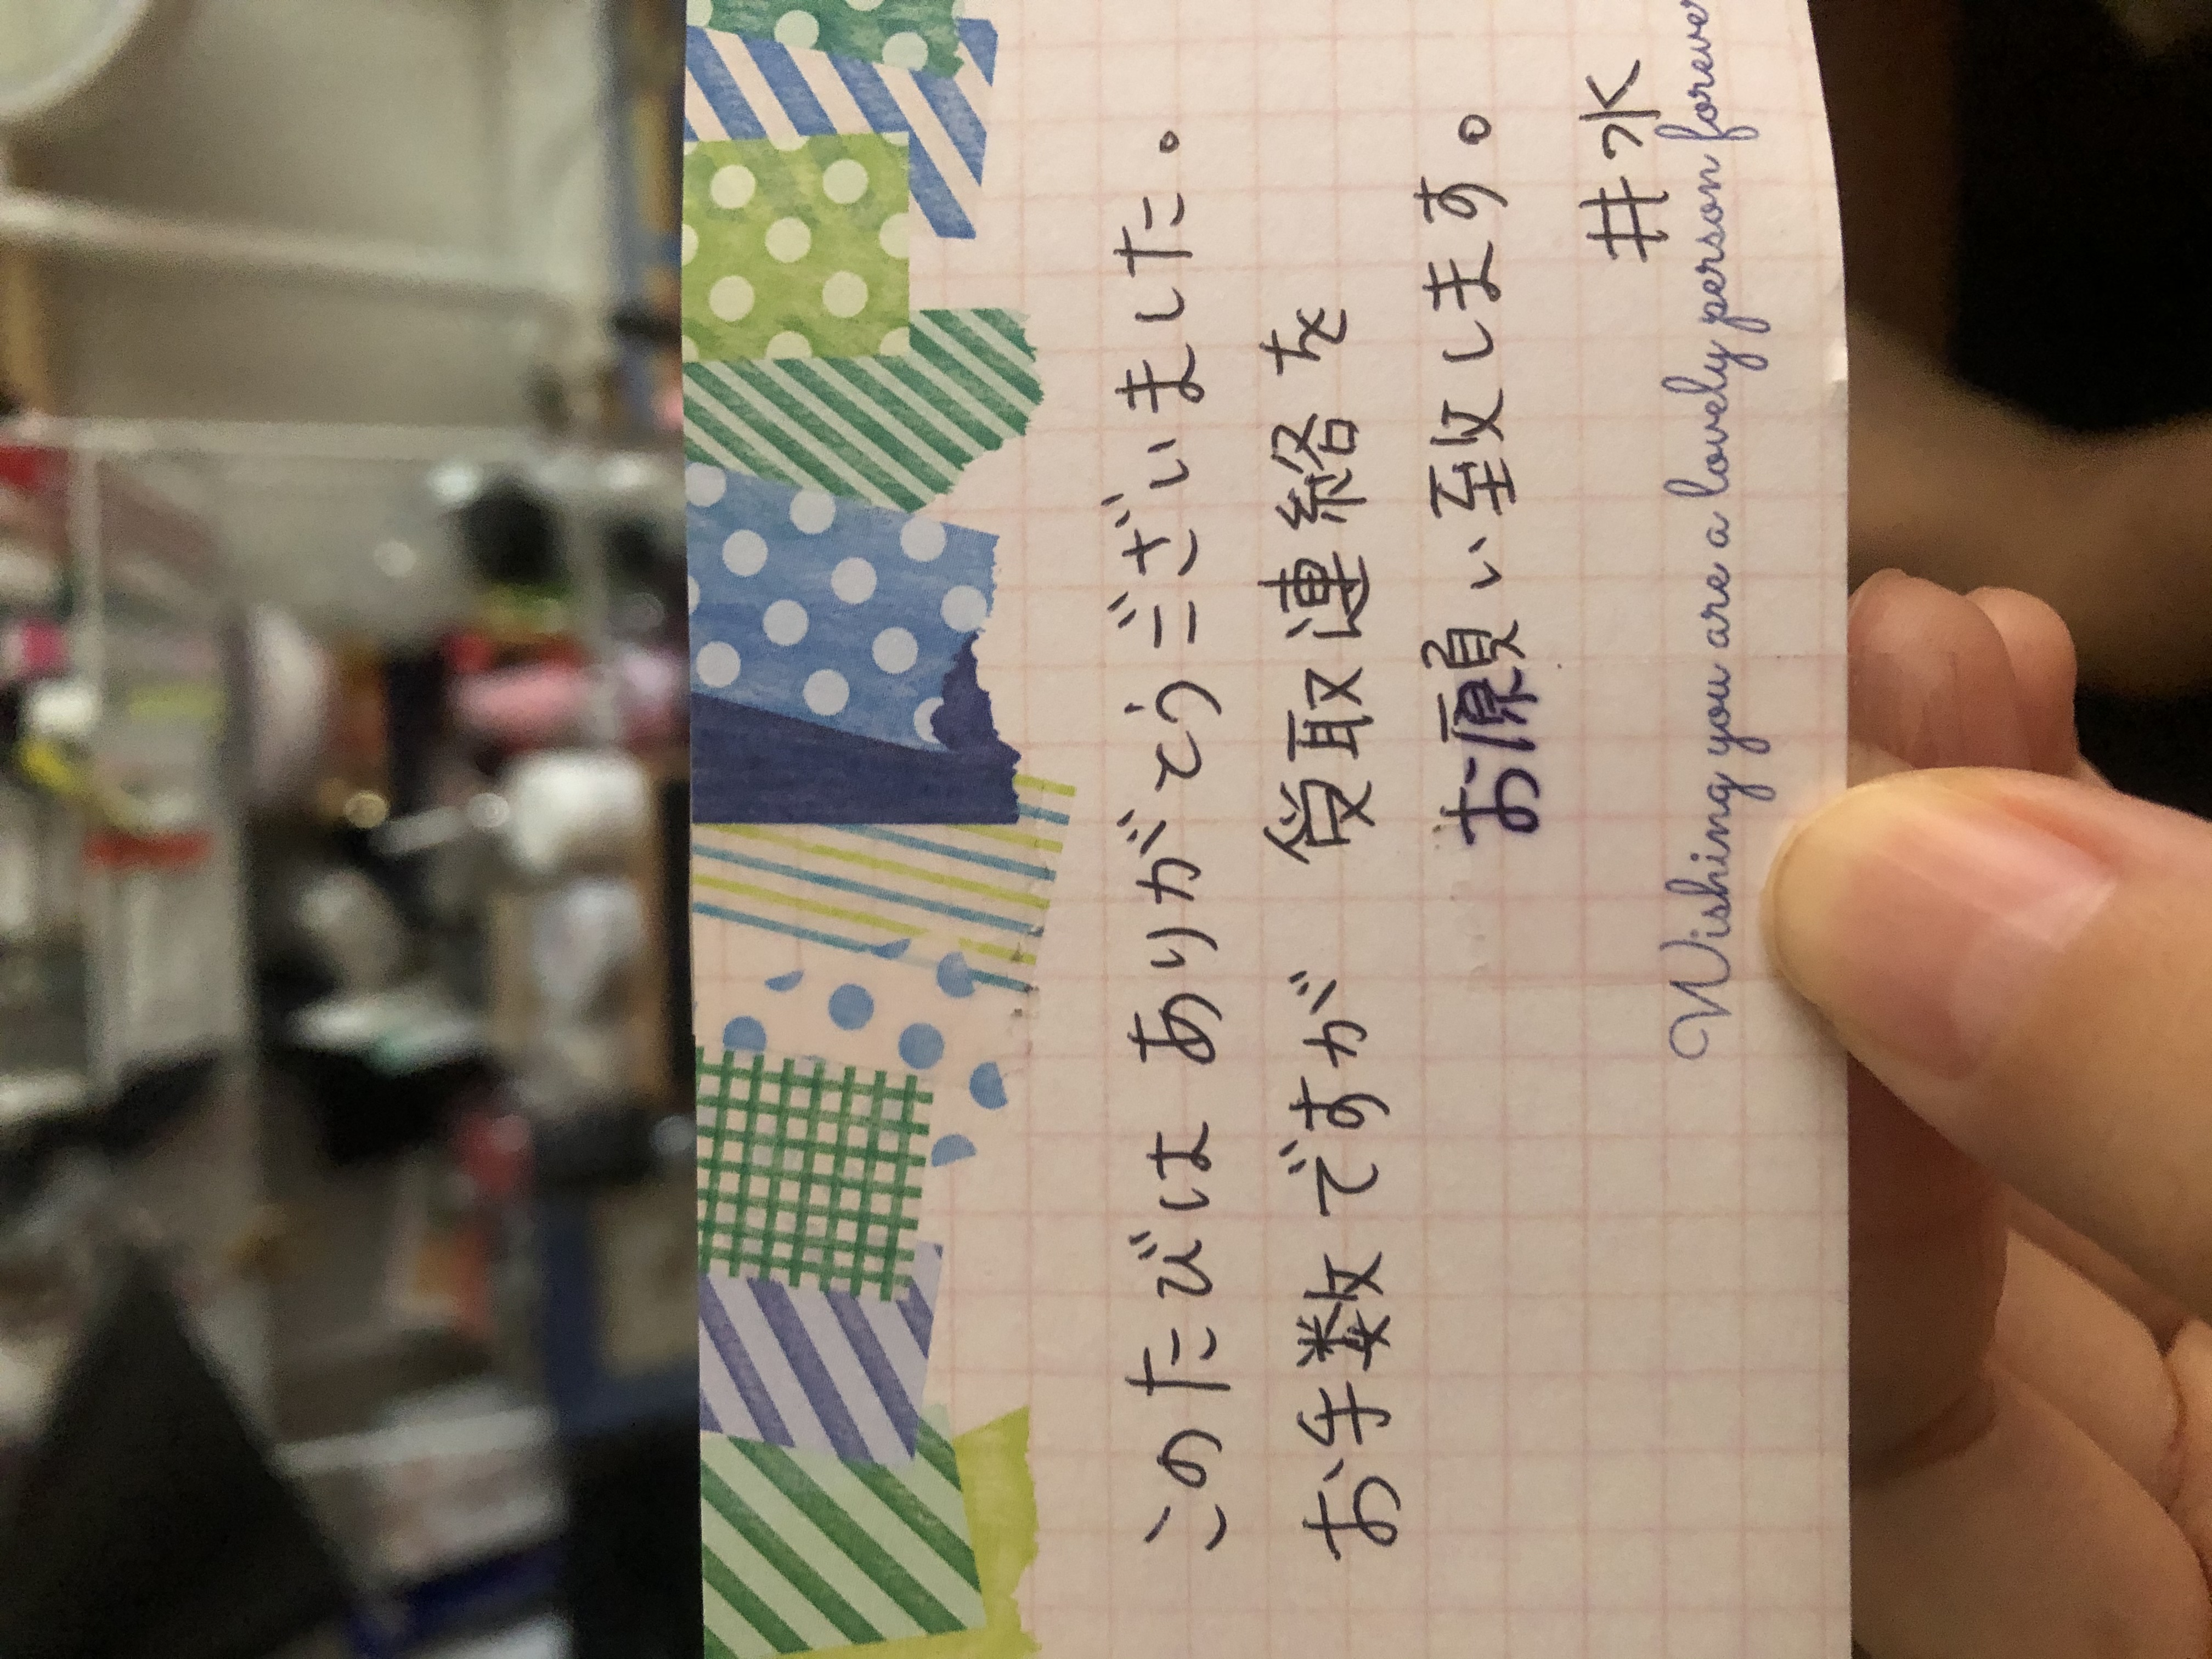 このたびは ありがとうございました。
お手数ですが 受取連絡を
お願い致します。
井水
Wishing you are a lovely person forever